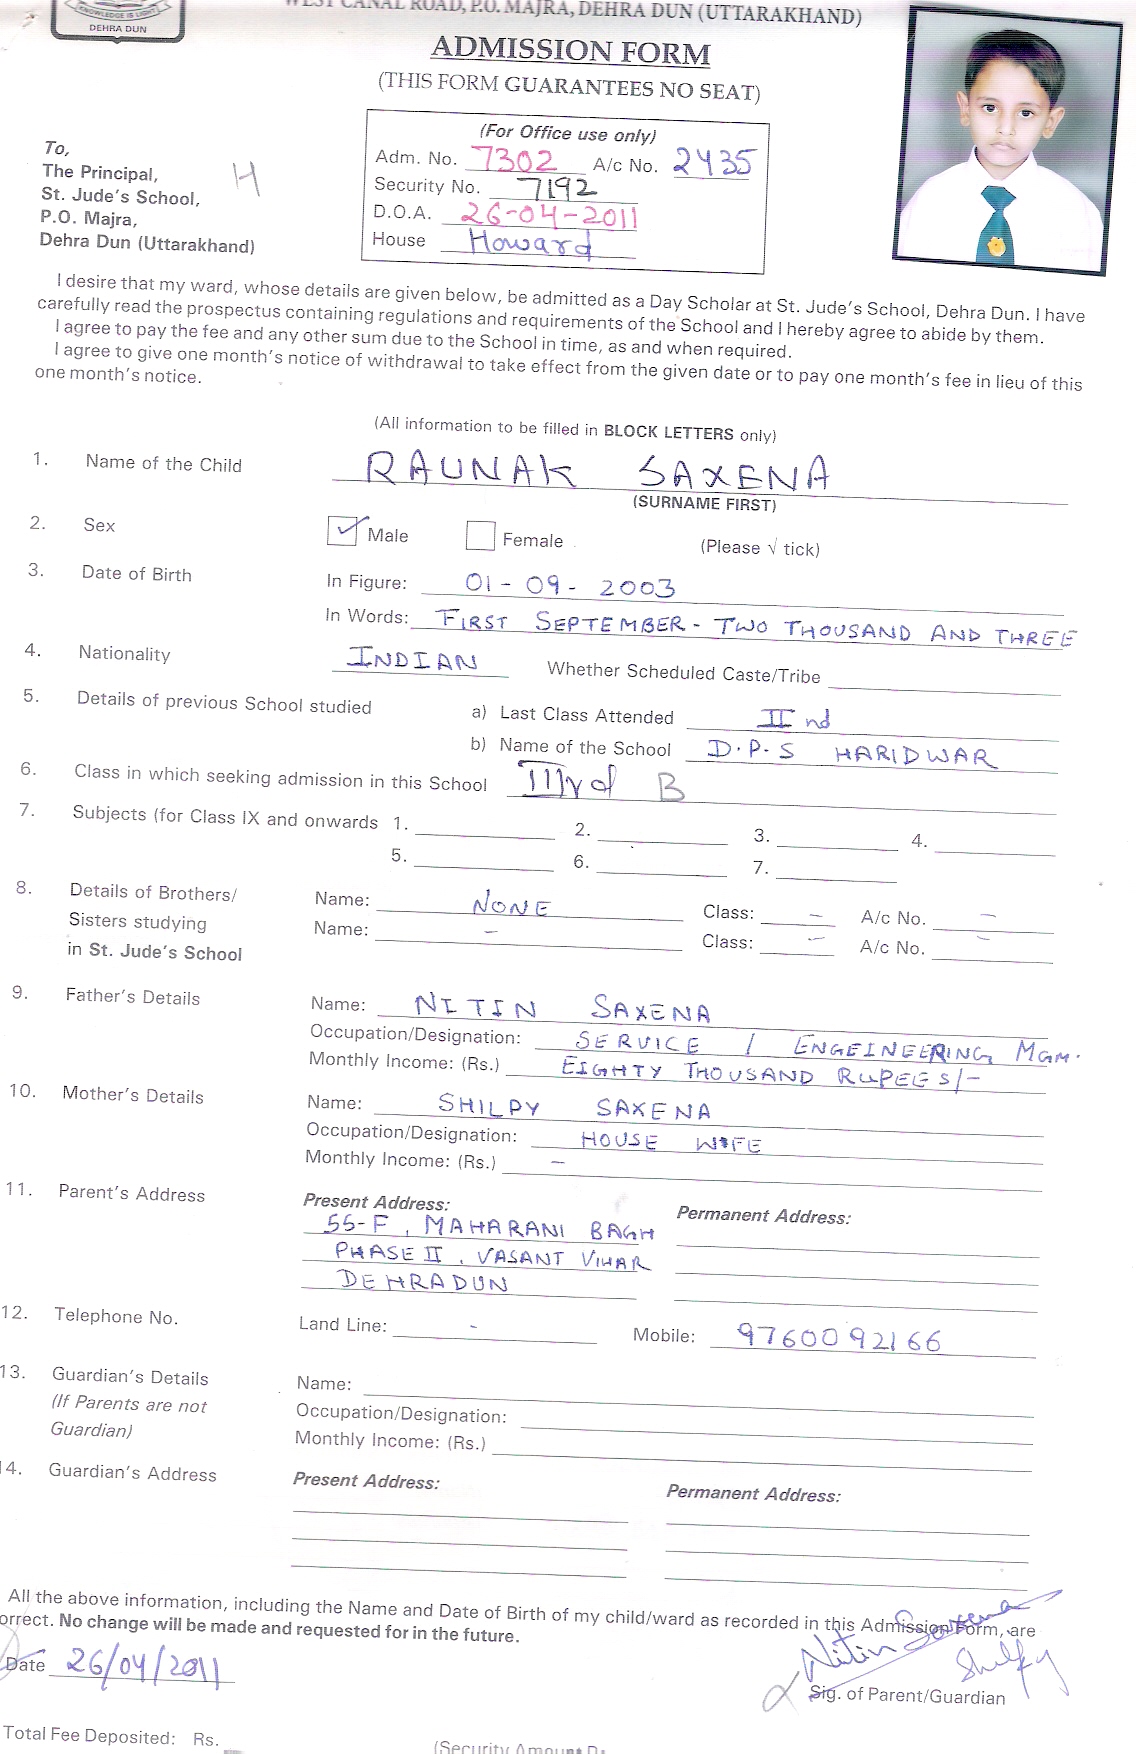 KNOWLEDGE IS LIGHT
DEHRA DUN
WEST CANAL ROAD, P.O. MAJRA, DEHRA DUN (UTTARAKHAND)
ADMISSION FORM
(THIS FORM GUARANTEES NO SEAT)
(For Office use only)
Adm. No. 7302 A/c No. 2435
Security No. 7192
D.O.A. 26-04-2011
House Howard
To,
The Principal,
St. Jude's School,
P.O. Majra,
Dehra Dun (Uttarakhand)
H
I desire that my ward, whose details are given below, be admitted as a Day Scholar at St. Jude's School, Dehra Dun. I have
carefully read the prospectus containing regulations and requirements of the School and I hereby agree to abide by them.
I agree to pay the fee and any other sum due to the School in time, as and when required.
I agree to give one month's notice of withdrawal to take effect from the given date or to pay one month's fee in lieu of this
one month's notice.
(All information to be filled in BLOCK LETTERS only)
1. Name of the Child RAUNAK SAXENA
(SURNAME FIRST)
2. Sex Male Female (Please √ tick)
3. Date of Birth In Figure: 01-09-2003
In Words: FIRST SEPTEMBER - TWO THOUSAND AND THREE
4. Nationality INDIAN Whether Scheduled Caste/Tribe
5. Details of previous School studied a) Last Class Attended II nd
b) Name of the School D.P.S HARIDWAR
6. Class in which seeking admission in this School III rd B
7. Subjects (for Class IX and onwards 1. 2. 3. 4.
5. 6. 7.
8. Details of Brothers/ Name: NONE Class: – A/c No. –
Sisters studying Name: – Class: – A/c No. –
in St. Jude's School
9. Father's Details Name: NITIN SAXENA
Occupation/Designation: SERVICE / ENGEINEERING MGM.
Monthly Income: (Rs.) EIGHTY THOUSAND RUPEES/-
10. Mother's Details Name: SHILPY SAXENA
Occupation/Designation: HOUSE WIFE
Monthly Income: (Rs.) –
11. Parent's Address Present Address: Permanent Address:
55-F, MAHARANI BAGH
PHASE II, VASANT VIHAR
DEHRADUN
12. Telephone No. Land Line: - Mobile: 9760092166
13. Guardian's Details Name:
(If Parents are not Occupation/Designation:
Guardian) Monthly Income: (Rs.)
14. Guardian's Address Present Address: Permanent Address:
All the above information, including the Name and Date of Birth of my child/ward as recorded in this Admission Form, are
orrect. No change will be made and requested for in the future.
Nitin Saxena
Shilpy
Date 26/04/2011
Sig. of Parent/Guardian
Total Fee Deposited: Rs.
(Security Amount